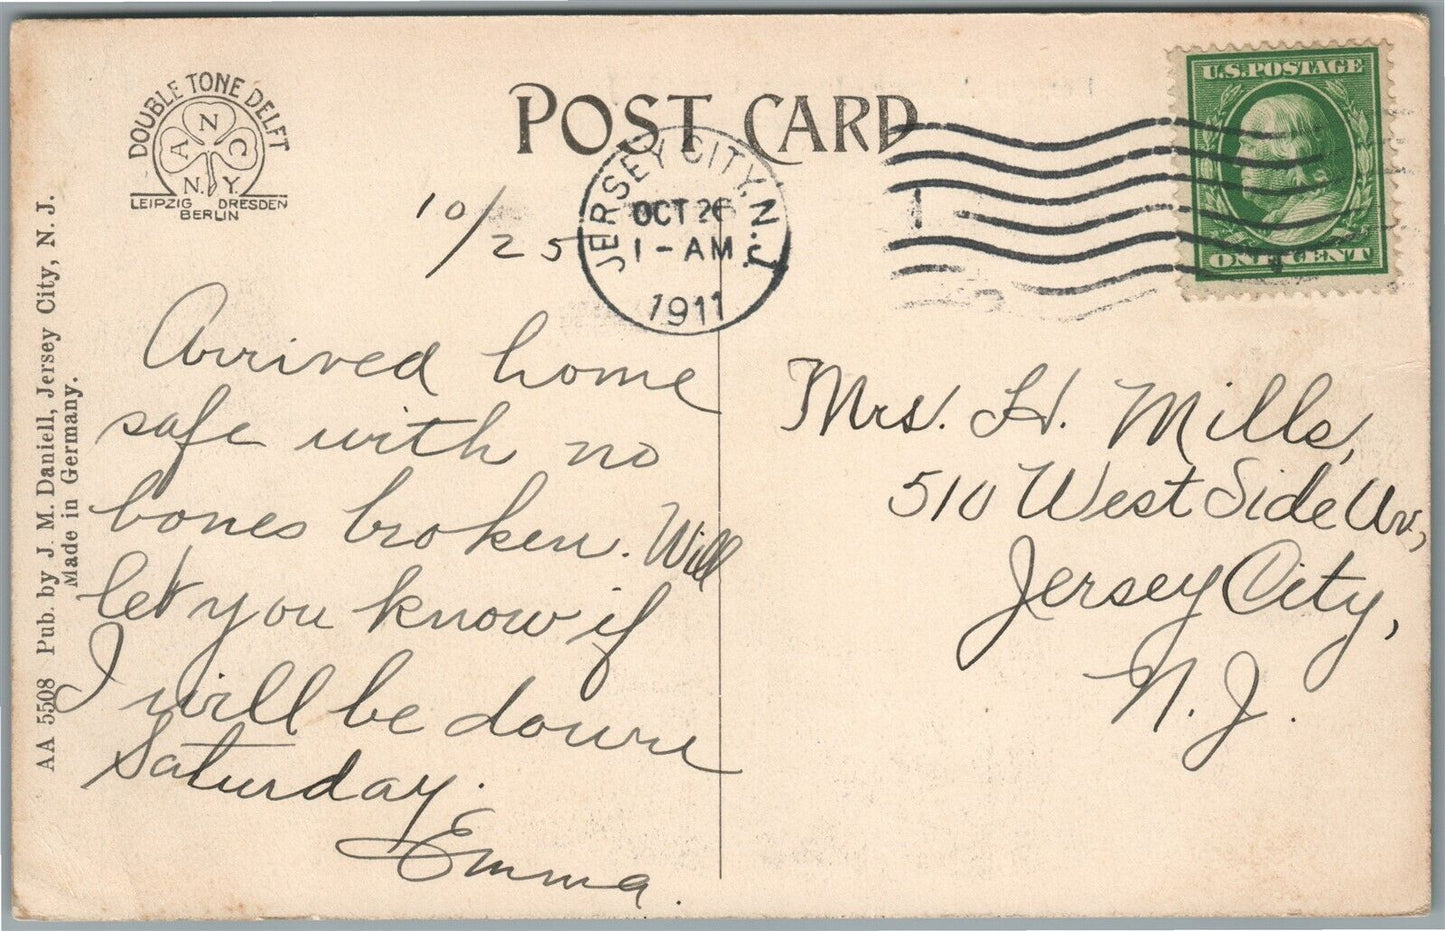 DOUBLE TONE DELFT
A N C
N Y
LEIPZIG DRESDEN
BERLIN
POST CARD
JERSEY CITY, N.J.
OCT 26
1-AM
1911
1
U.S.POSTAGE
ONE CENT
10/25
Arrived home
safe with no
bones broken. Will
let you know if
I will be down
Saturday.
Emma.
Mrs. H. Mills,
510 West Side Av,
Jersey City,
N. J.
AA 5508 Pub. by J. M. Daniell, Jersey City, N. J.
Made in Germany.